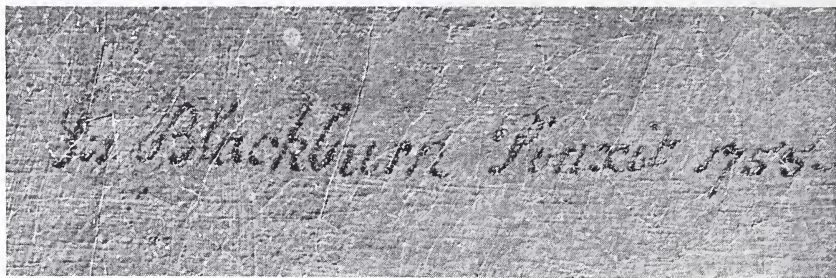 Jos Blackburn Pinxit 1755